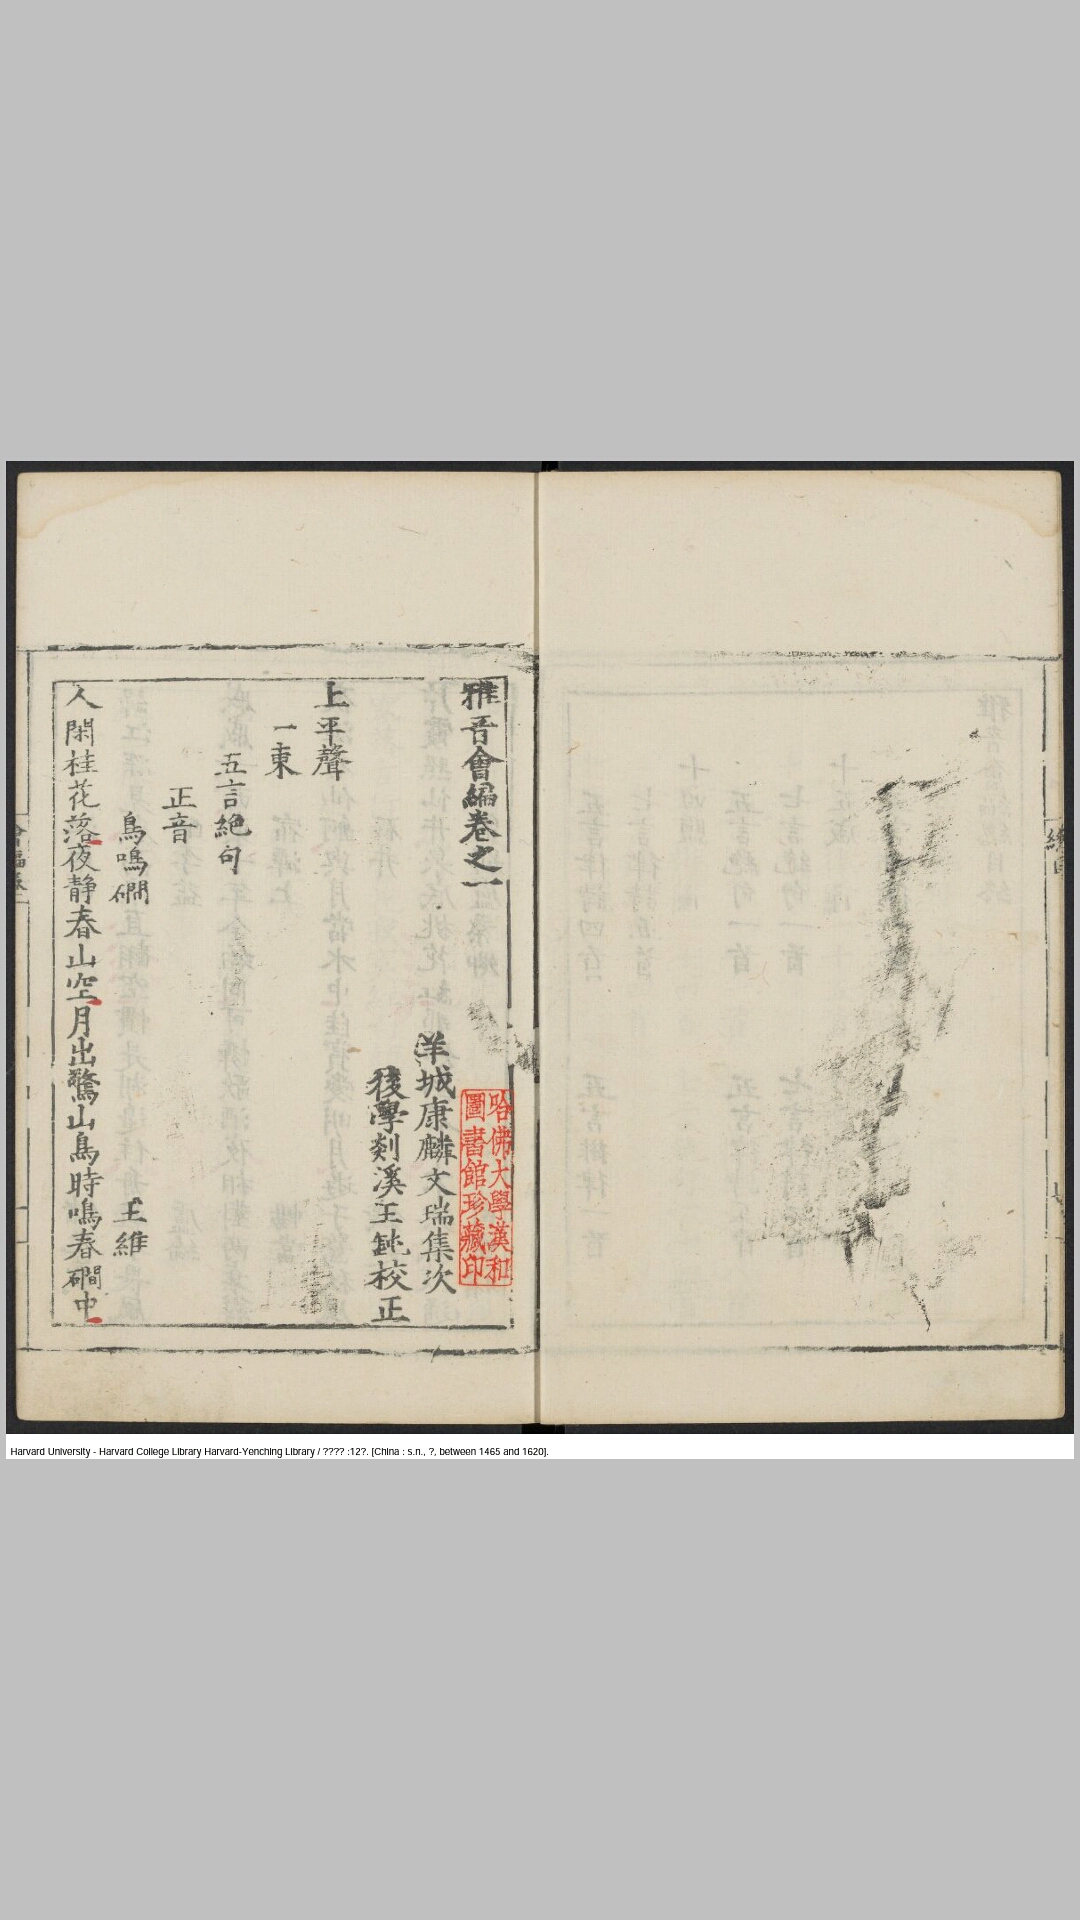 雅音會編卷之一
羊城康麟文瑞集次
後學剡溪王鈍校正
哈佛大學漢和
圖書館珍藏印
上平聲
一東
五言絕句
正音
鳥鳴磵 王維
人閑桂花落夜静春山空月出驚山鳥時鳴春磵中
Harvard University - Harvard College Library Harvard-Yenching Library / ???? :12?. [China : s.n., ?, between 1465 and 1620].